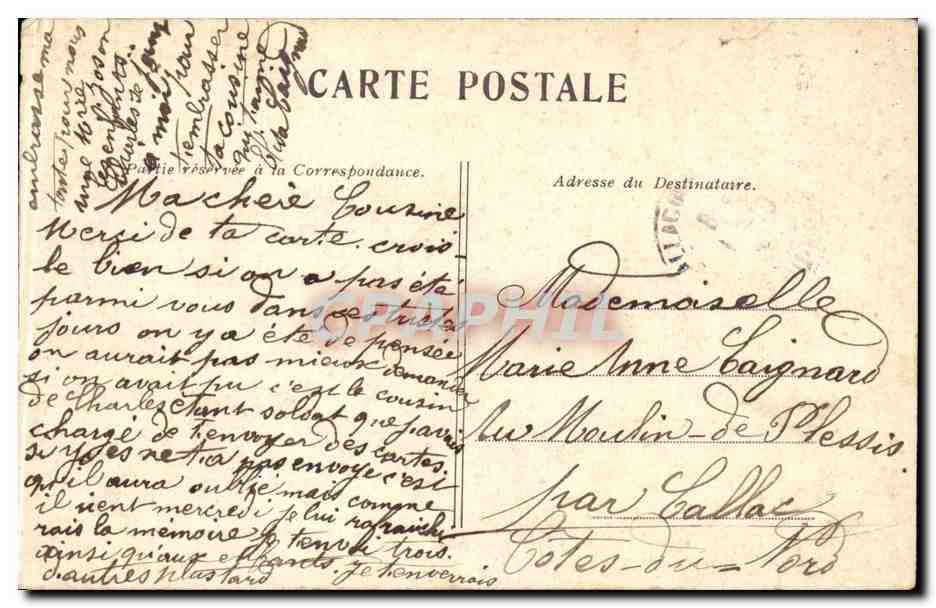 CARTE POSTALE
Partie réservée à la Correspondance.
Adresse du Destinataire.
Ma chère Cousine
Merci de ta carte. crois
le bien si on a pas été
parmi vous dans ces tristes
jours on y a été de pensée
on aurait pas mieux demander
si on avait pu c'est le cousin
de Charles étant soldat que j'avais
chargé de t'envoyer des cartes.
si ne t'a pas envoyé c'est
qu'il aura oublié mais comme
il vient mercredi je lui rafraichi
rais la mémoire je t'envoi trois.
ainsi qu'aux enfants. je t'enverrais
d'autres plus tard
embrasse ma
tante pour nous
une
les enfants
Charles se joint
à moi pour
t'embrasser
ta cousine
qui t'aime
Mademoiselle
Marie Anne Caignard
au Moulin-de Plessis
par Callac
Côtes-du-Nord
CPAPHIL